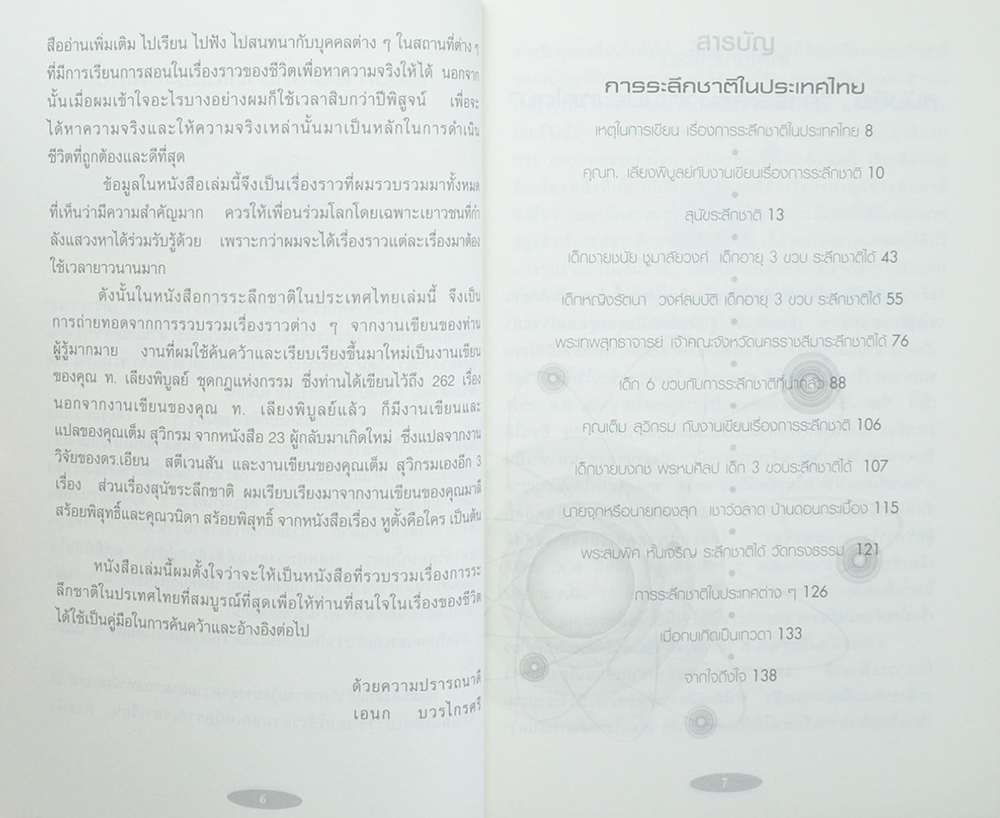 สืออ่านเพิ่มเติม ไปเรียน ไปฟัง ไปสนทนากับบุคคลต่าง ๆ ในสถานที่ต่าง ๆ
ที่มีการเรียนการสอนในเรื่องราวของชีวิตเพื่อหาความจริงให้ได้ นอกจาก
นั้นเมื่อผมเข้าใจอะไรบางอย่างผมก็ใช้เวลาสิบกว่าปีพิสูจน์ เพื่อจะ
ได้หาความจริงและให้ความจริงเหล่านั้นมาเป็นหลักในการดำเนิน
ชีวิตที่ถูกต้องและดีที่สุด
ข้อมูลในหนังสือเล่มนี้จึงเป็นเรื่องราวที่ผมรวบรวมมาทั้งหมด
ที่เห็นว่ามีความสำคัญมาก ควรให้เพื่อนร่วมโลกโดยเฉพาะเยาวชนที่กำ
ลังแสวงหาได้ร่วมรับรู้ด้วย เพราะกว่าผมจะได้เรื่องราวแต่ละเรื่องมาต้อง
ใช้เวลายาวนานมาก
ดังนั้นในหนังสือการระลึกชาติในประเทศไทยเล่มนี้ จึงเป็น
การถ่ายทอดจากการรวบรวมเรื่องราวต่าง ๆ จากงานเขียนของท่าน
ผู้รู้มากมาย งานที่ผมใช้ค้นคว้าและเรียบเรียงขึ้นมาใหม่เป็นงานเขียน
ของคุณ ท. เลียงพิบูลย์ ชุดกฎแห่งกรรม ซึ่งท่านได้เขียนไว้ถึง 262 เรื่อง
นอกจากงานเขียนของคุณ ท. เลียงพิบูลย์แล้ว ก็มีงานเขียนและ
แปลของคุณเต็ม สุวิกรม จากหนังสือ 23 ผู้กลับมาเกิดใหม่ ซึ่งแปลจากงาน
วิจัยของดร.เอียน สตีเวนสัน และงานเขียนของคุณเต็ม สุวิกรมเองอีก 3
เรื่อง ส่วนเรื่องสุนัขระลึกชาติ ผมเรียบเรียงมาจากงานเขียนของคุณมาลี
สร้อยพิสุทธิ์และคุณวนิดา สร้อยพิสุทธิ์ จากหนังสือเรื่อง หูตั้งคือใคร เป็นต้น
หนังสือเล่มนี้ผมตั้งใจว่าจะให้เป็นหนังสือที่รวบรวมเรื่องการระ
ลึกชาติในปรเทศไทยที่สมบูรณ์ที่สุดเพื่อให้ท่านที่สนใจในเรื่องของชีวิต
ได้ใช้เป็นคู่มือในการค้นคว้าและอ้างอิงต่อไป
ด้วยความปรารถนาดี
เอนก บวรไกรศรี
6
สารบัญ
การระลึกชาติในประเทศไทย
เหตุในการเขียน เรื่องการระลึกชาติในประเทศไทย 8
คุณท. เลียงพิบูลย์กับงานเขียนเรื่องการระลึกชาติ 10
สุนัขระลึกชาติ 13
เด็กชายชนัย ชูมาลัยวงศ์ เด็กอายุ 3 ขวบ ระลึกชาติได้ 43
เด็กหญิงรัตนา วงศ์สมบัติ เด็กอายุ 3 ขวบ ระลึกชาติได้ 55
พระเทพสุทธาจารย์ เจ้าคณะจังหวัดนครราชสีมาระลึกชาติได้ 76
เด็ก 6 ขวบกับการระลึกชาติที่น่ากลัว 88
คุณเต็ม สุวิกรม กับงานเขียนเรื่องการระลึกชาติ 106
เด็กชายบงกช พรหมศิลป เด็ก 3 ขวบระลึกชาติได้ 107
นายจุกหรือนายทองสุก เชาวัดลาด บ้านดอนกระเบื้อง 115
พระสมพิศ หั่นเจริญ ระลึกชาติได้ วัดทรงธรรม 121
การระลึกชาติในประเทศต่าง ๆ 126
เมื่อกบเกิดเป็นเทวดา 133
จากใจถึงใจ 138
7